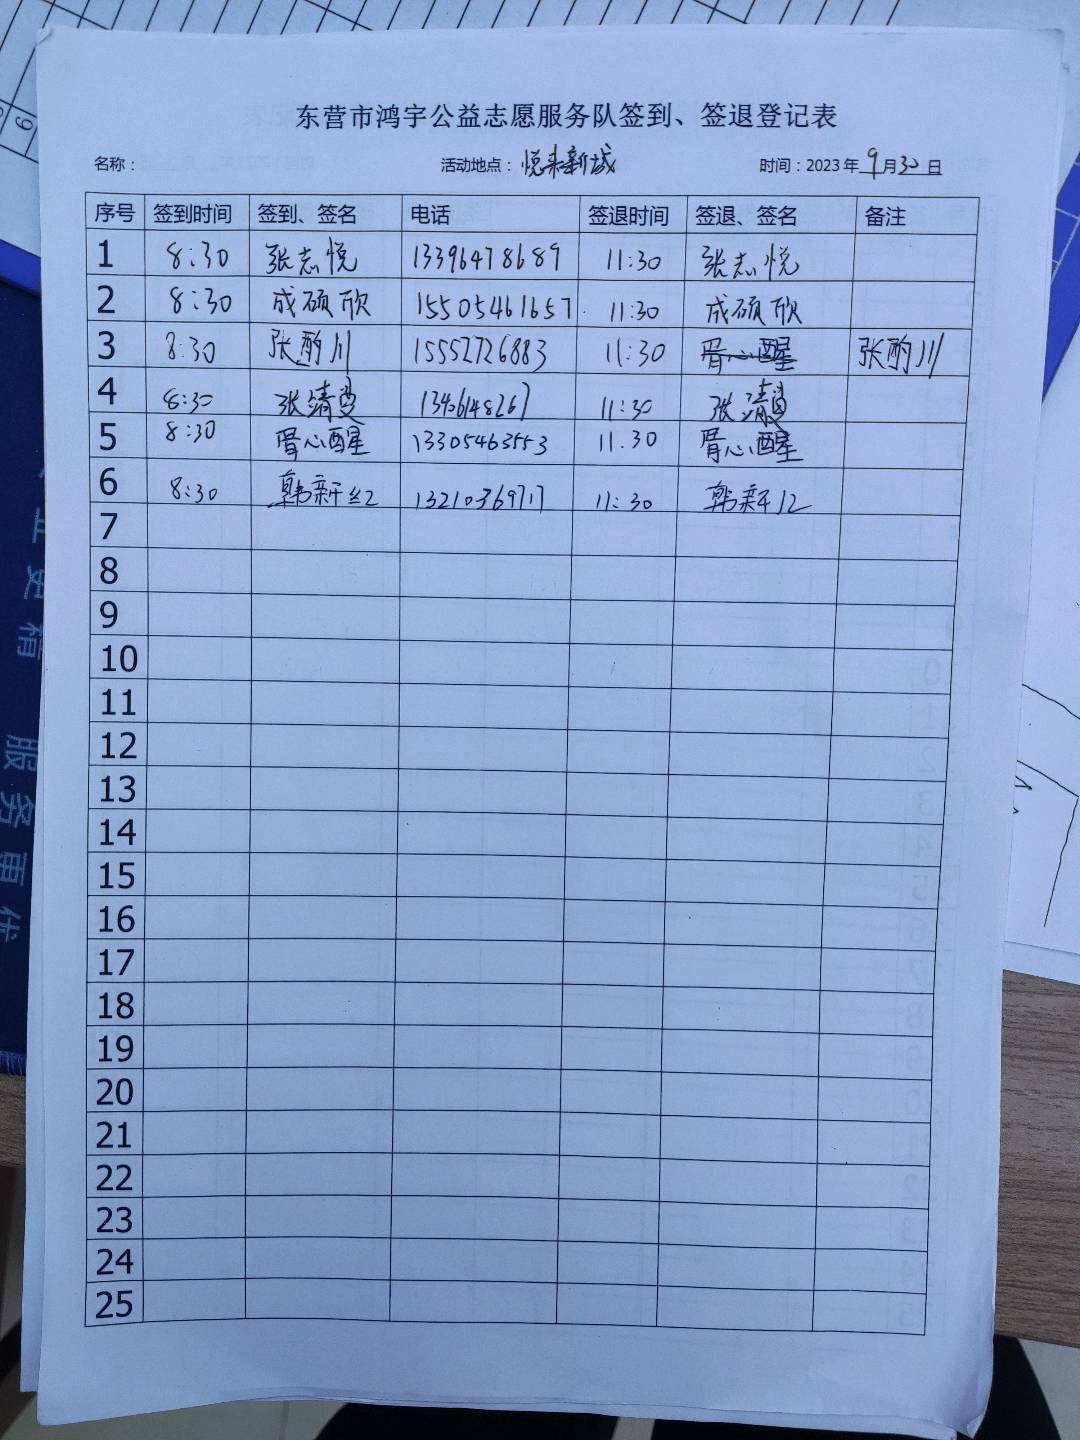 东营市鸿宇公益志愿服务队签到、签退登记表
名称： 活动地点：悦来新城 时间：2023年9月30日
序号 签到时间 签到、签名 电话 签退时间 签退、签名 备注
1 8:30 张志悦 13396478689 11:30 张志悦
2 8:30 成硕欣 15505461657 11:30 成硕欣
3 8:30 张酌川 15552726883 11:30 胥心醒 张酌川
4 8:30 张清 11:30 张清
5 8:30 胥心醒 13305463553 11:30 胥心醒
6 8:30 韩新红 13210369717 11:30 韩新红
7
8
9
10
11
12
13
14
15
16
17
18
19
20
21
22
23
24
25
服务